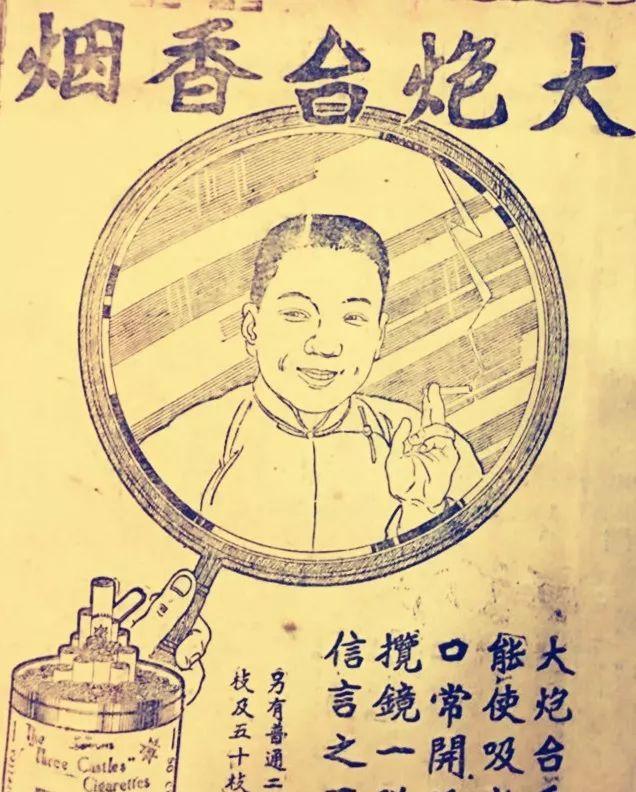 大炮台香烟
大炮台
能使吸
口常開
攬鏡一
信言之
另有普通二
枝及五十枝
The
"Three Castles"
Cigarettes